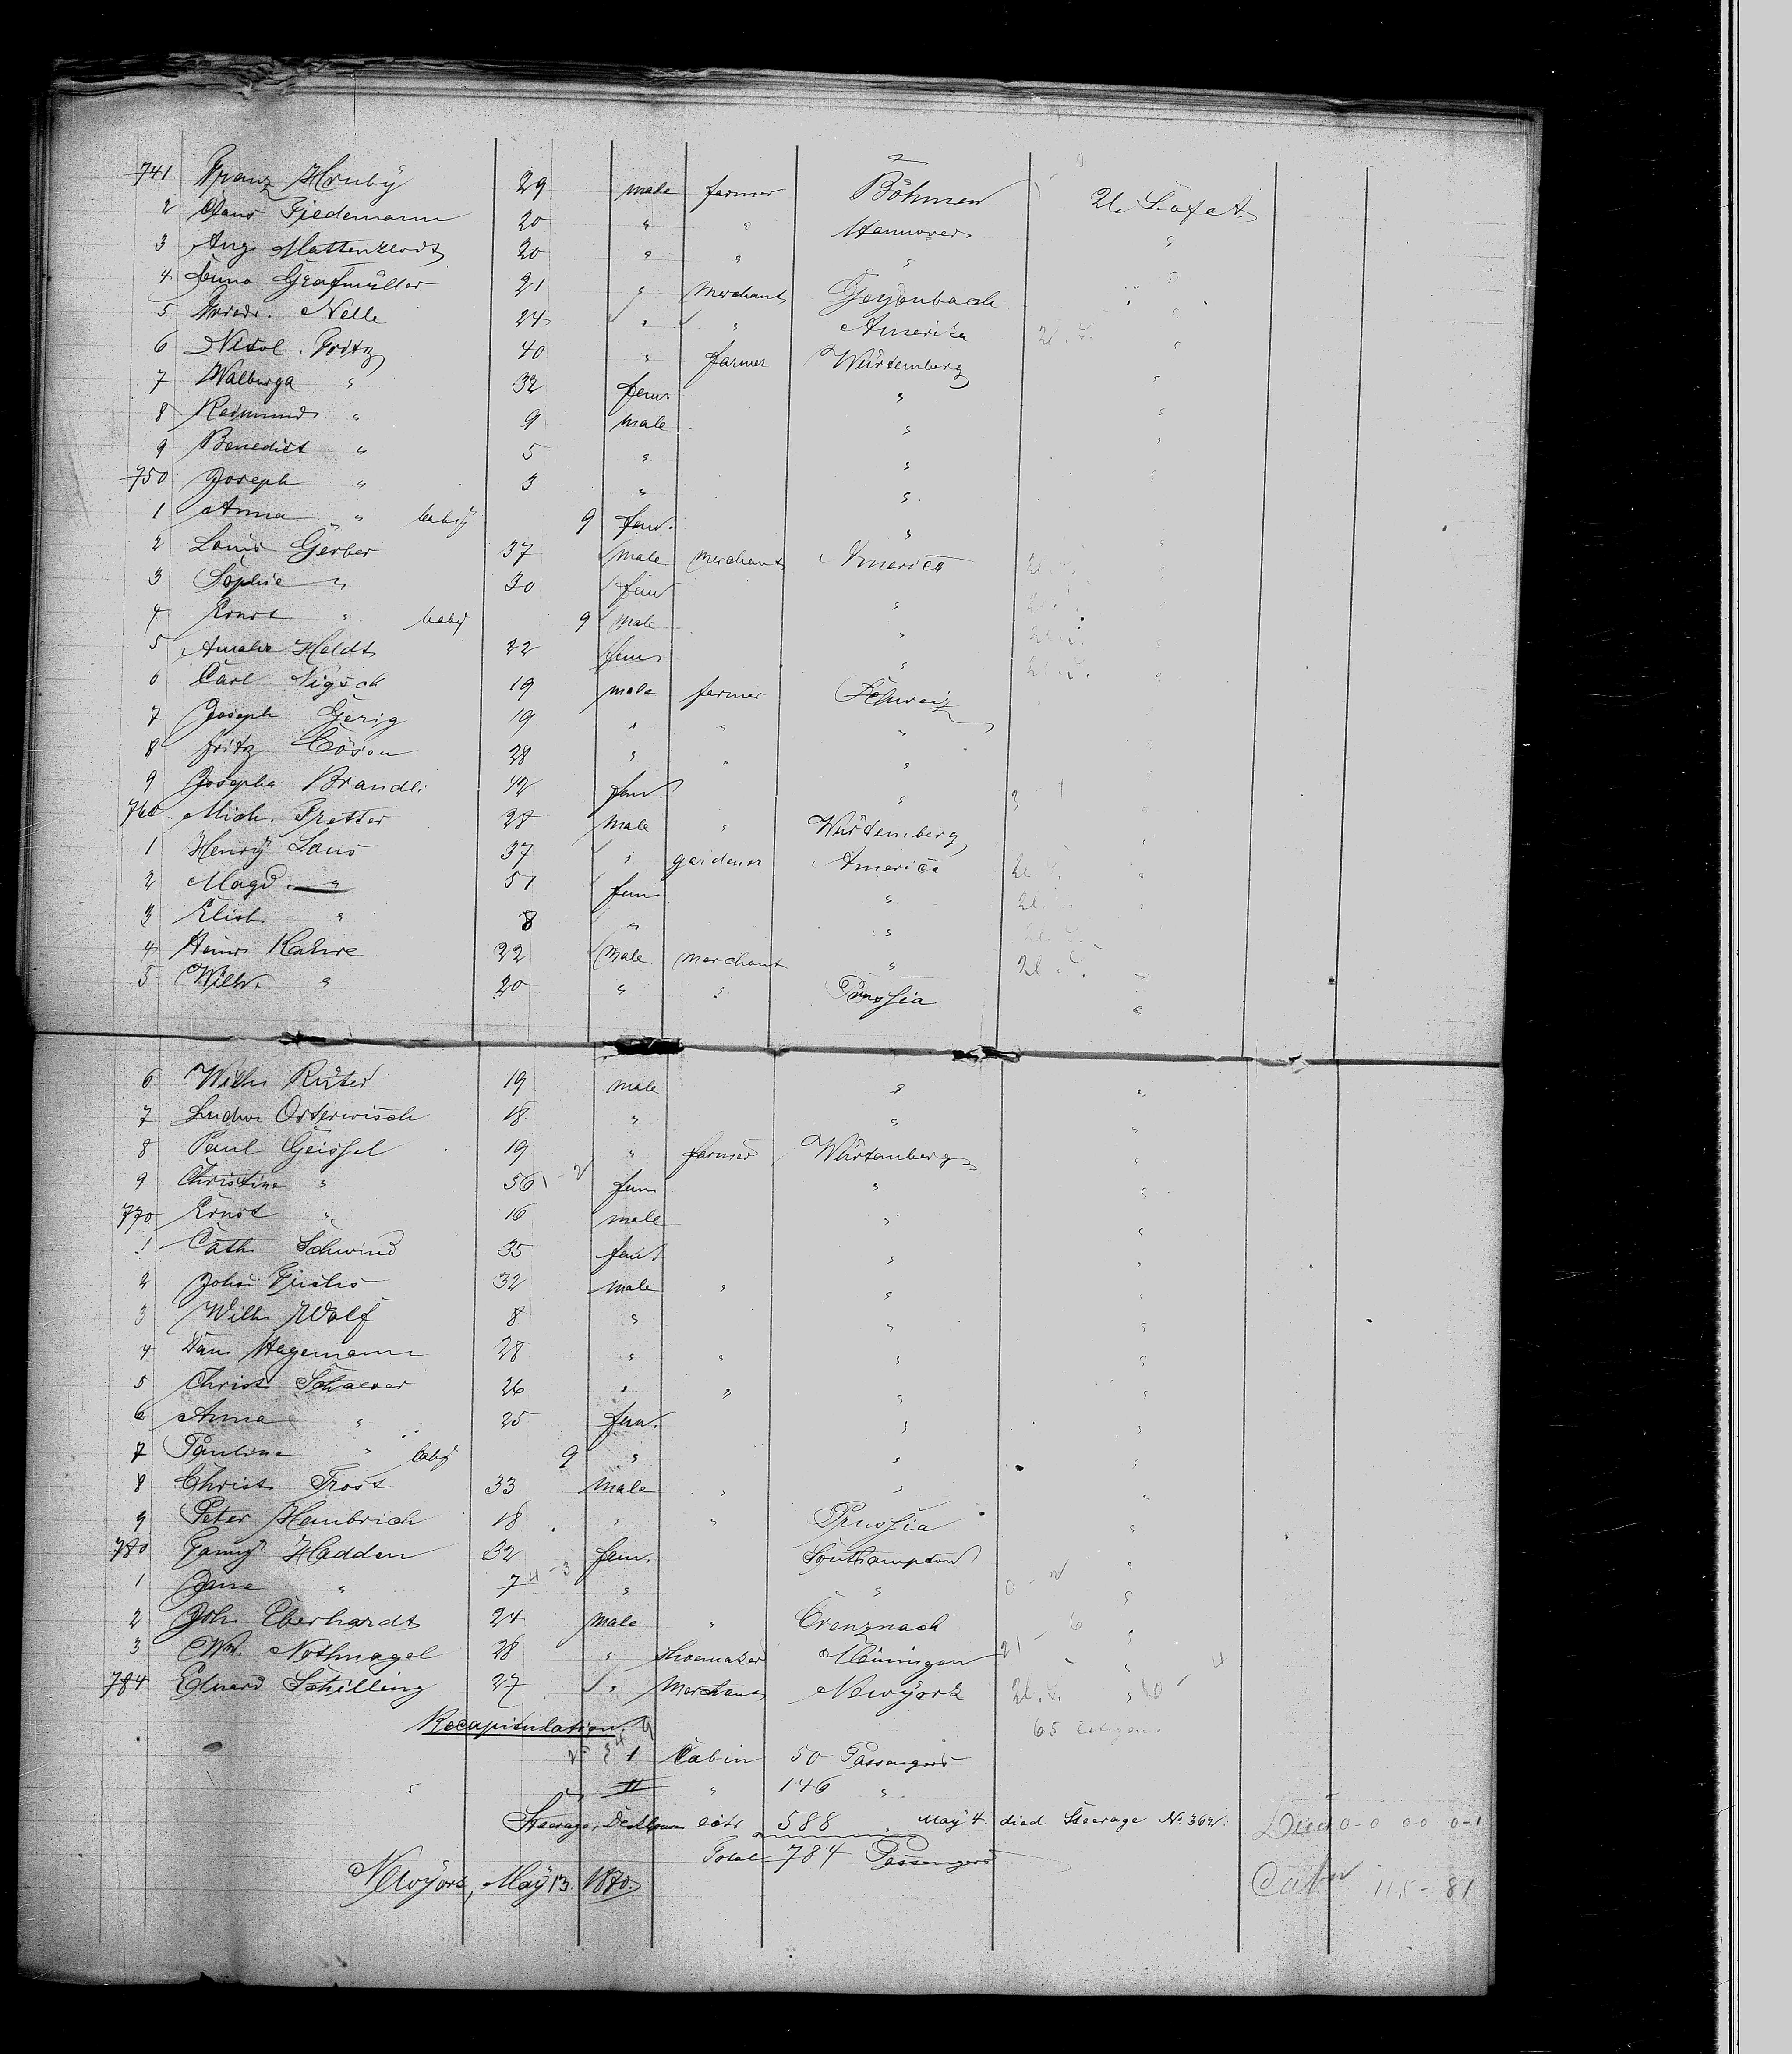 741 Franz Hruby 29 male farmer Böhmen U. S. of A.
2 Claus Tiedemann 20 " " Hannover "
3 Aug. Mattenklodt 20 " " " "
4 Grafmüller 21 " Merchant "
5 Friedr. Nelle 24 " " America "
6 Nicol. Fritz 40 " farmer Würtemberg "
7 Walburga " 32 fem. " "
8 Reimund " 9 male " "
9 Benedict " 5 " " "
750 Joseph " 3 " " "
1 Anna " baby 9 fem. " "
2 Louis Gerber 37 male merchant America "
3 Sophie " 30 fem " "
4 Ernst " baby 9 male " "
5 Amalie Heldt 22 fem. " "
6 Carl Nigsch 19 male farmer Schweiz
7 Joseph Gerig 19 " " "
8 Fritz 28 " " "
9 Josepha Brandli 42 fem. "
760 Mich. Fretter 28 male " Würtemberg "
1 Henry Laus 37 " gardener America "
2 Magd. " 51 fem. " "
3 Elisb " 8 " "
4 Heinr. Kahre 22 male merchant " "
5 Wilh. " 20 " " Prussia "
6 Wilh. Rüter 19 male " "
7 Ludw. Osterwisch 18 " " "
8 Paul Geissel 19 " farmer Würtemberg "
9 Christine " 56 fem " "
770 Ernst " 16 male " "
1 Cath. Schwind 35 fem. " "
2 Joh. Fuchs 32 male " " "
3 Wilh. Wolf 8 " " "
4 Dan. Hagemann 28 " " " "
5 Christ. Schaever 26 " " " "
6 Anna " 25 fem. " "
7 Pauline " baby 9 " " "
8 Christ. Trost 33 male " " "
9 Peter Hembrich 18 " " Prussia "
780 Fanny Hadden 32 fem. Southampton "
1 Jane " 7 " " "
2 Joh. Eberhardt 24 male " Creuznach "
3 Wm. Nothnagel 28 " shoemaker Meiningen "
784 Eduard Schilling 27 " Merchant Newyork "
Recapitulation.
I Cabin 50 Passengers
II " 146 "
Steerage 588 " May 4. died Steerage No. 362.
Total 784 Passengers
Newyork, May 13. 1870.